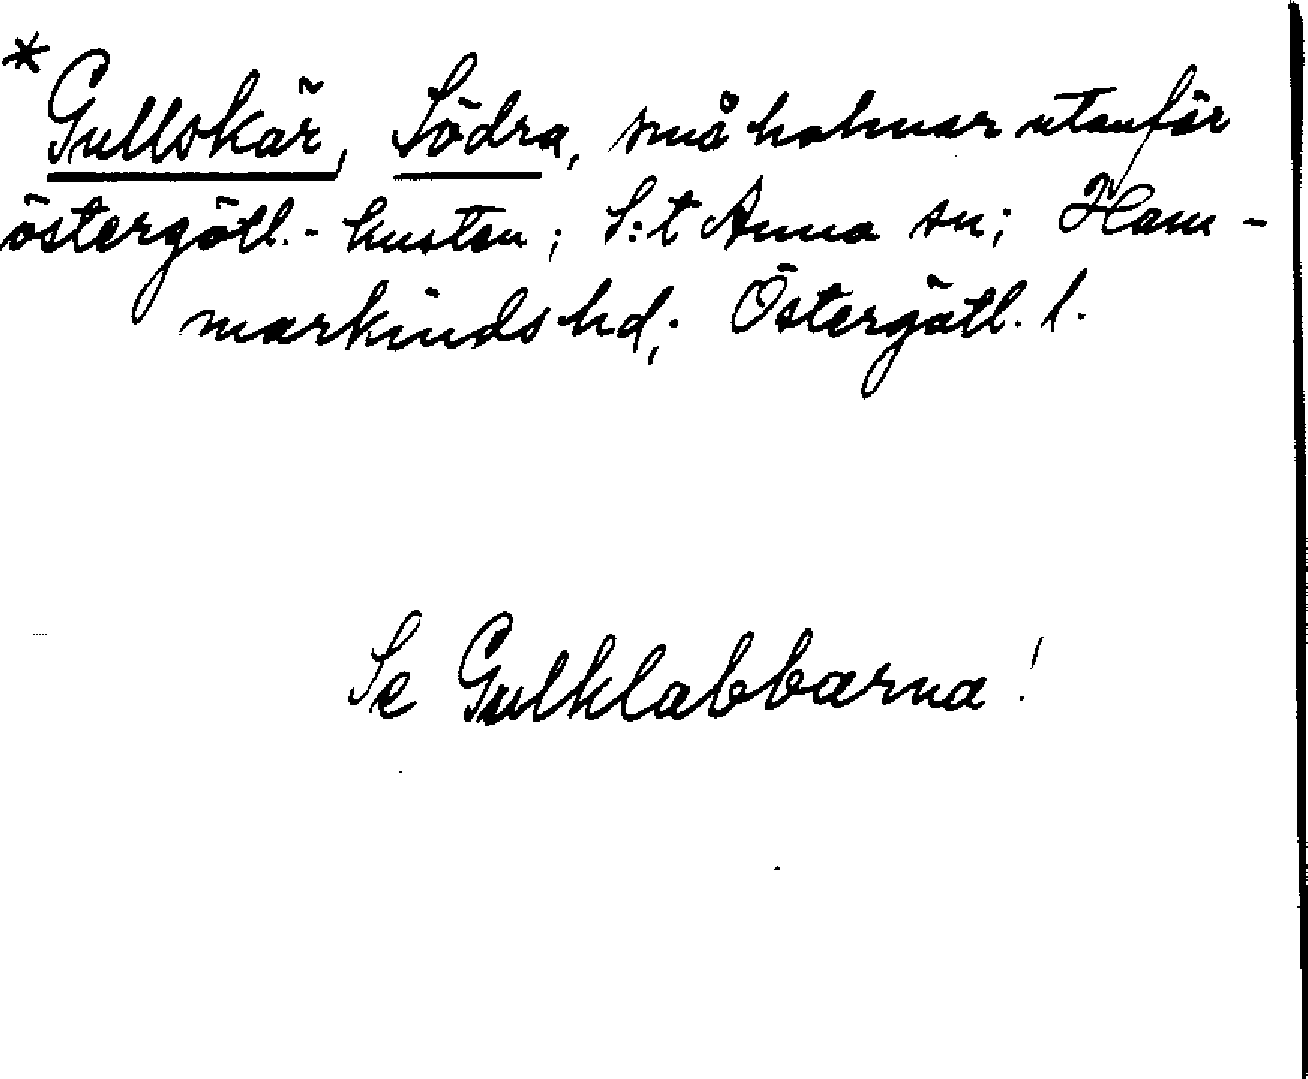 * Gullskär, Södra, små holmar utanför
östergötl.- kusten; S:t Anna sn; Ham-
markinds hd; Östergötl. l.
Se Gulklabbarna!